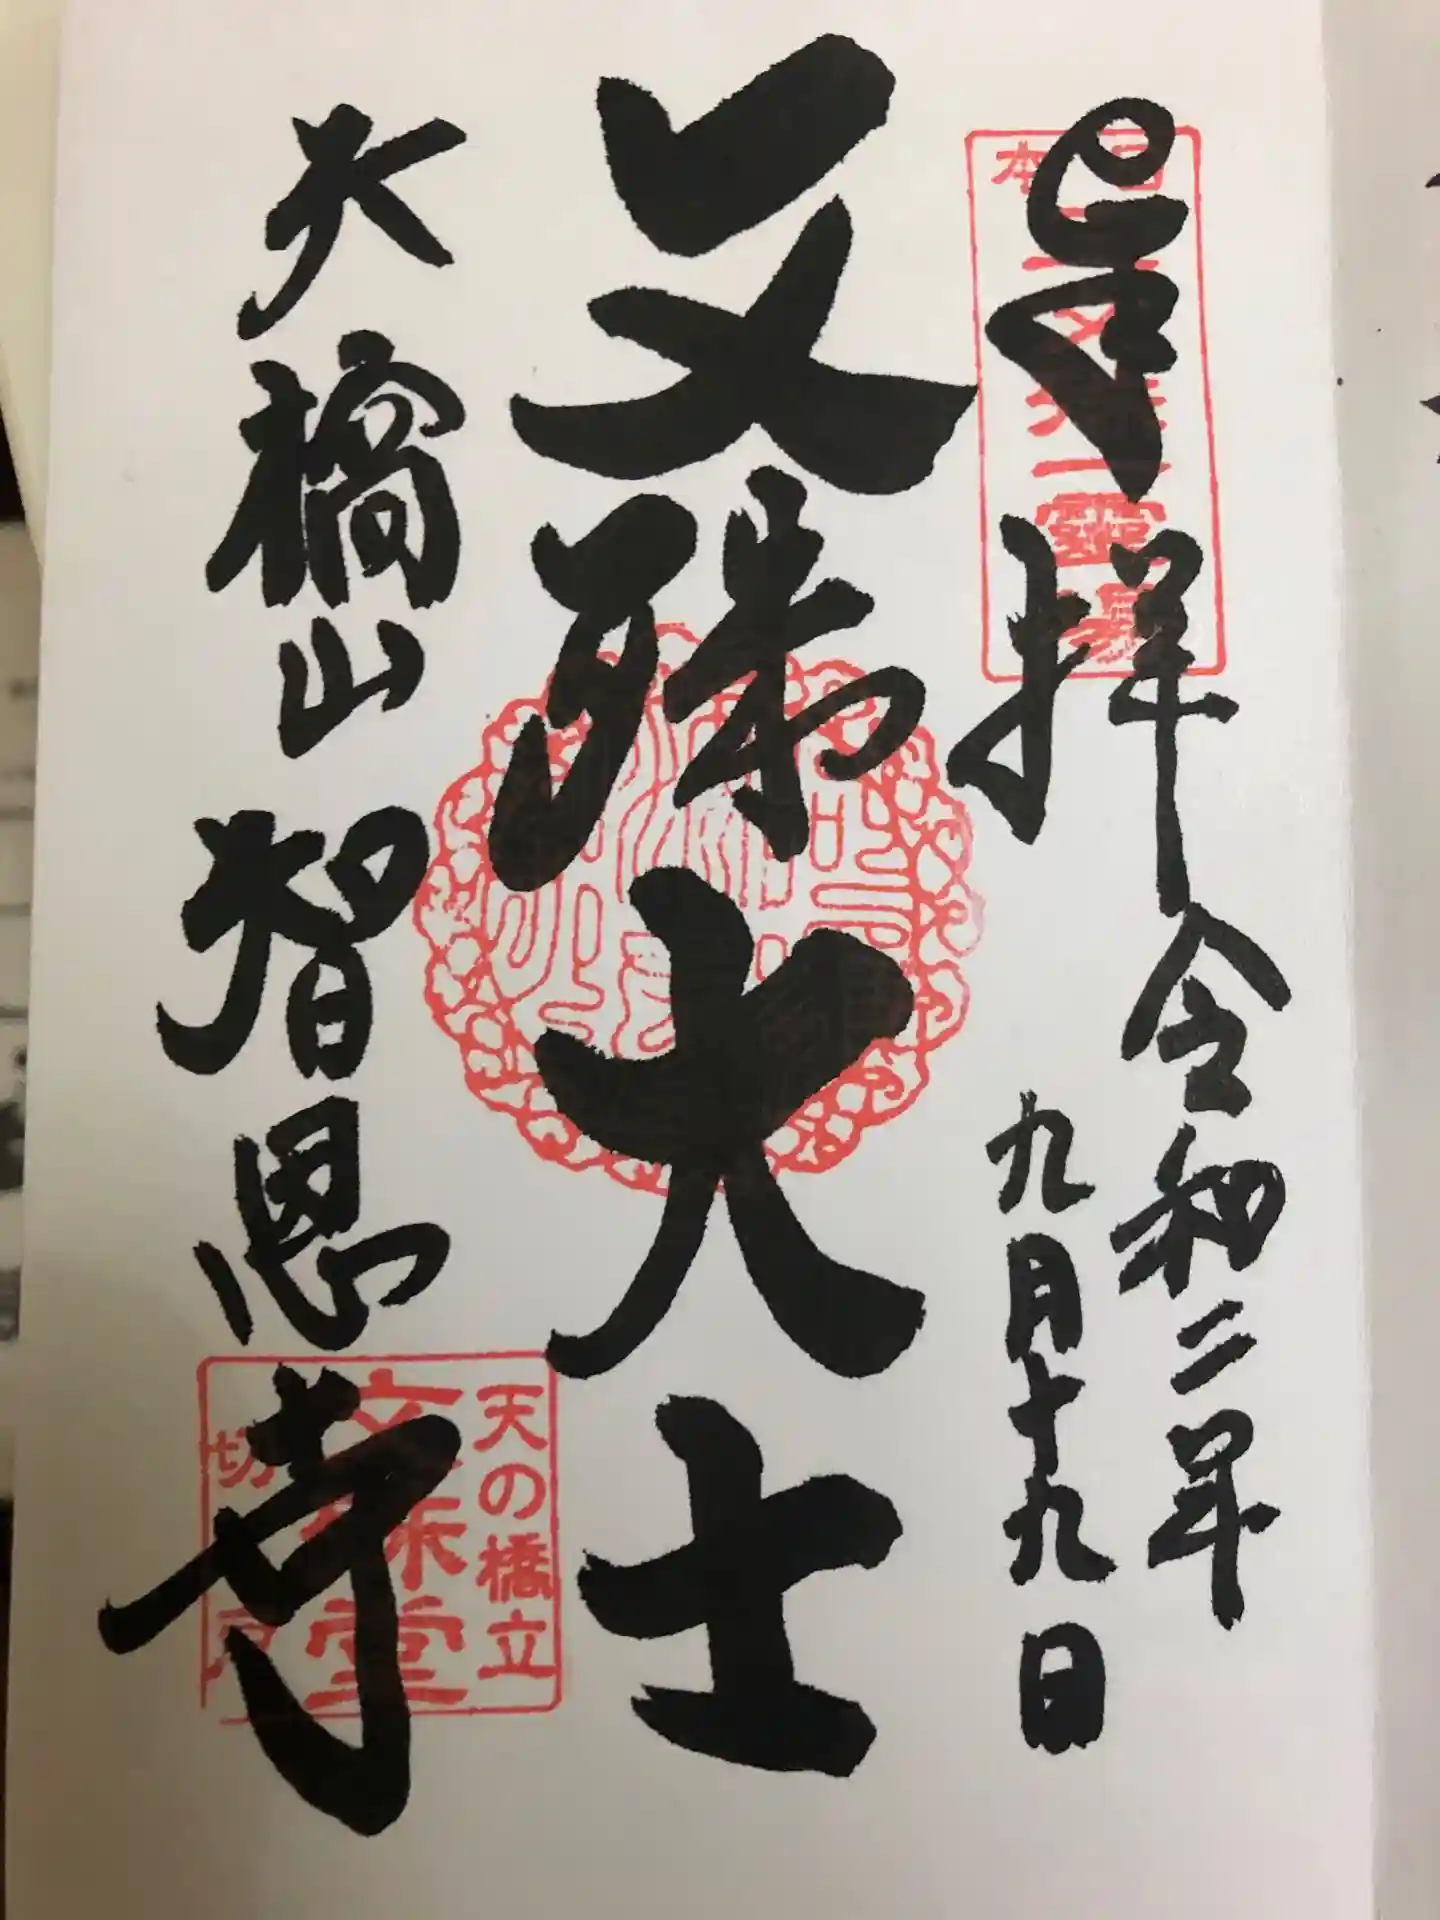 奉拝
令和二年
九月十九日
日本三文殊第一霊場
文殊大士
天橋山智恩寺
天の橋立
文殊堂
切戸